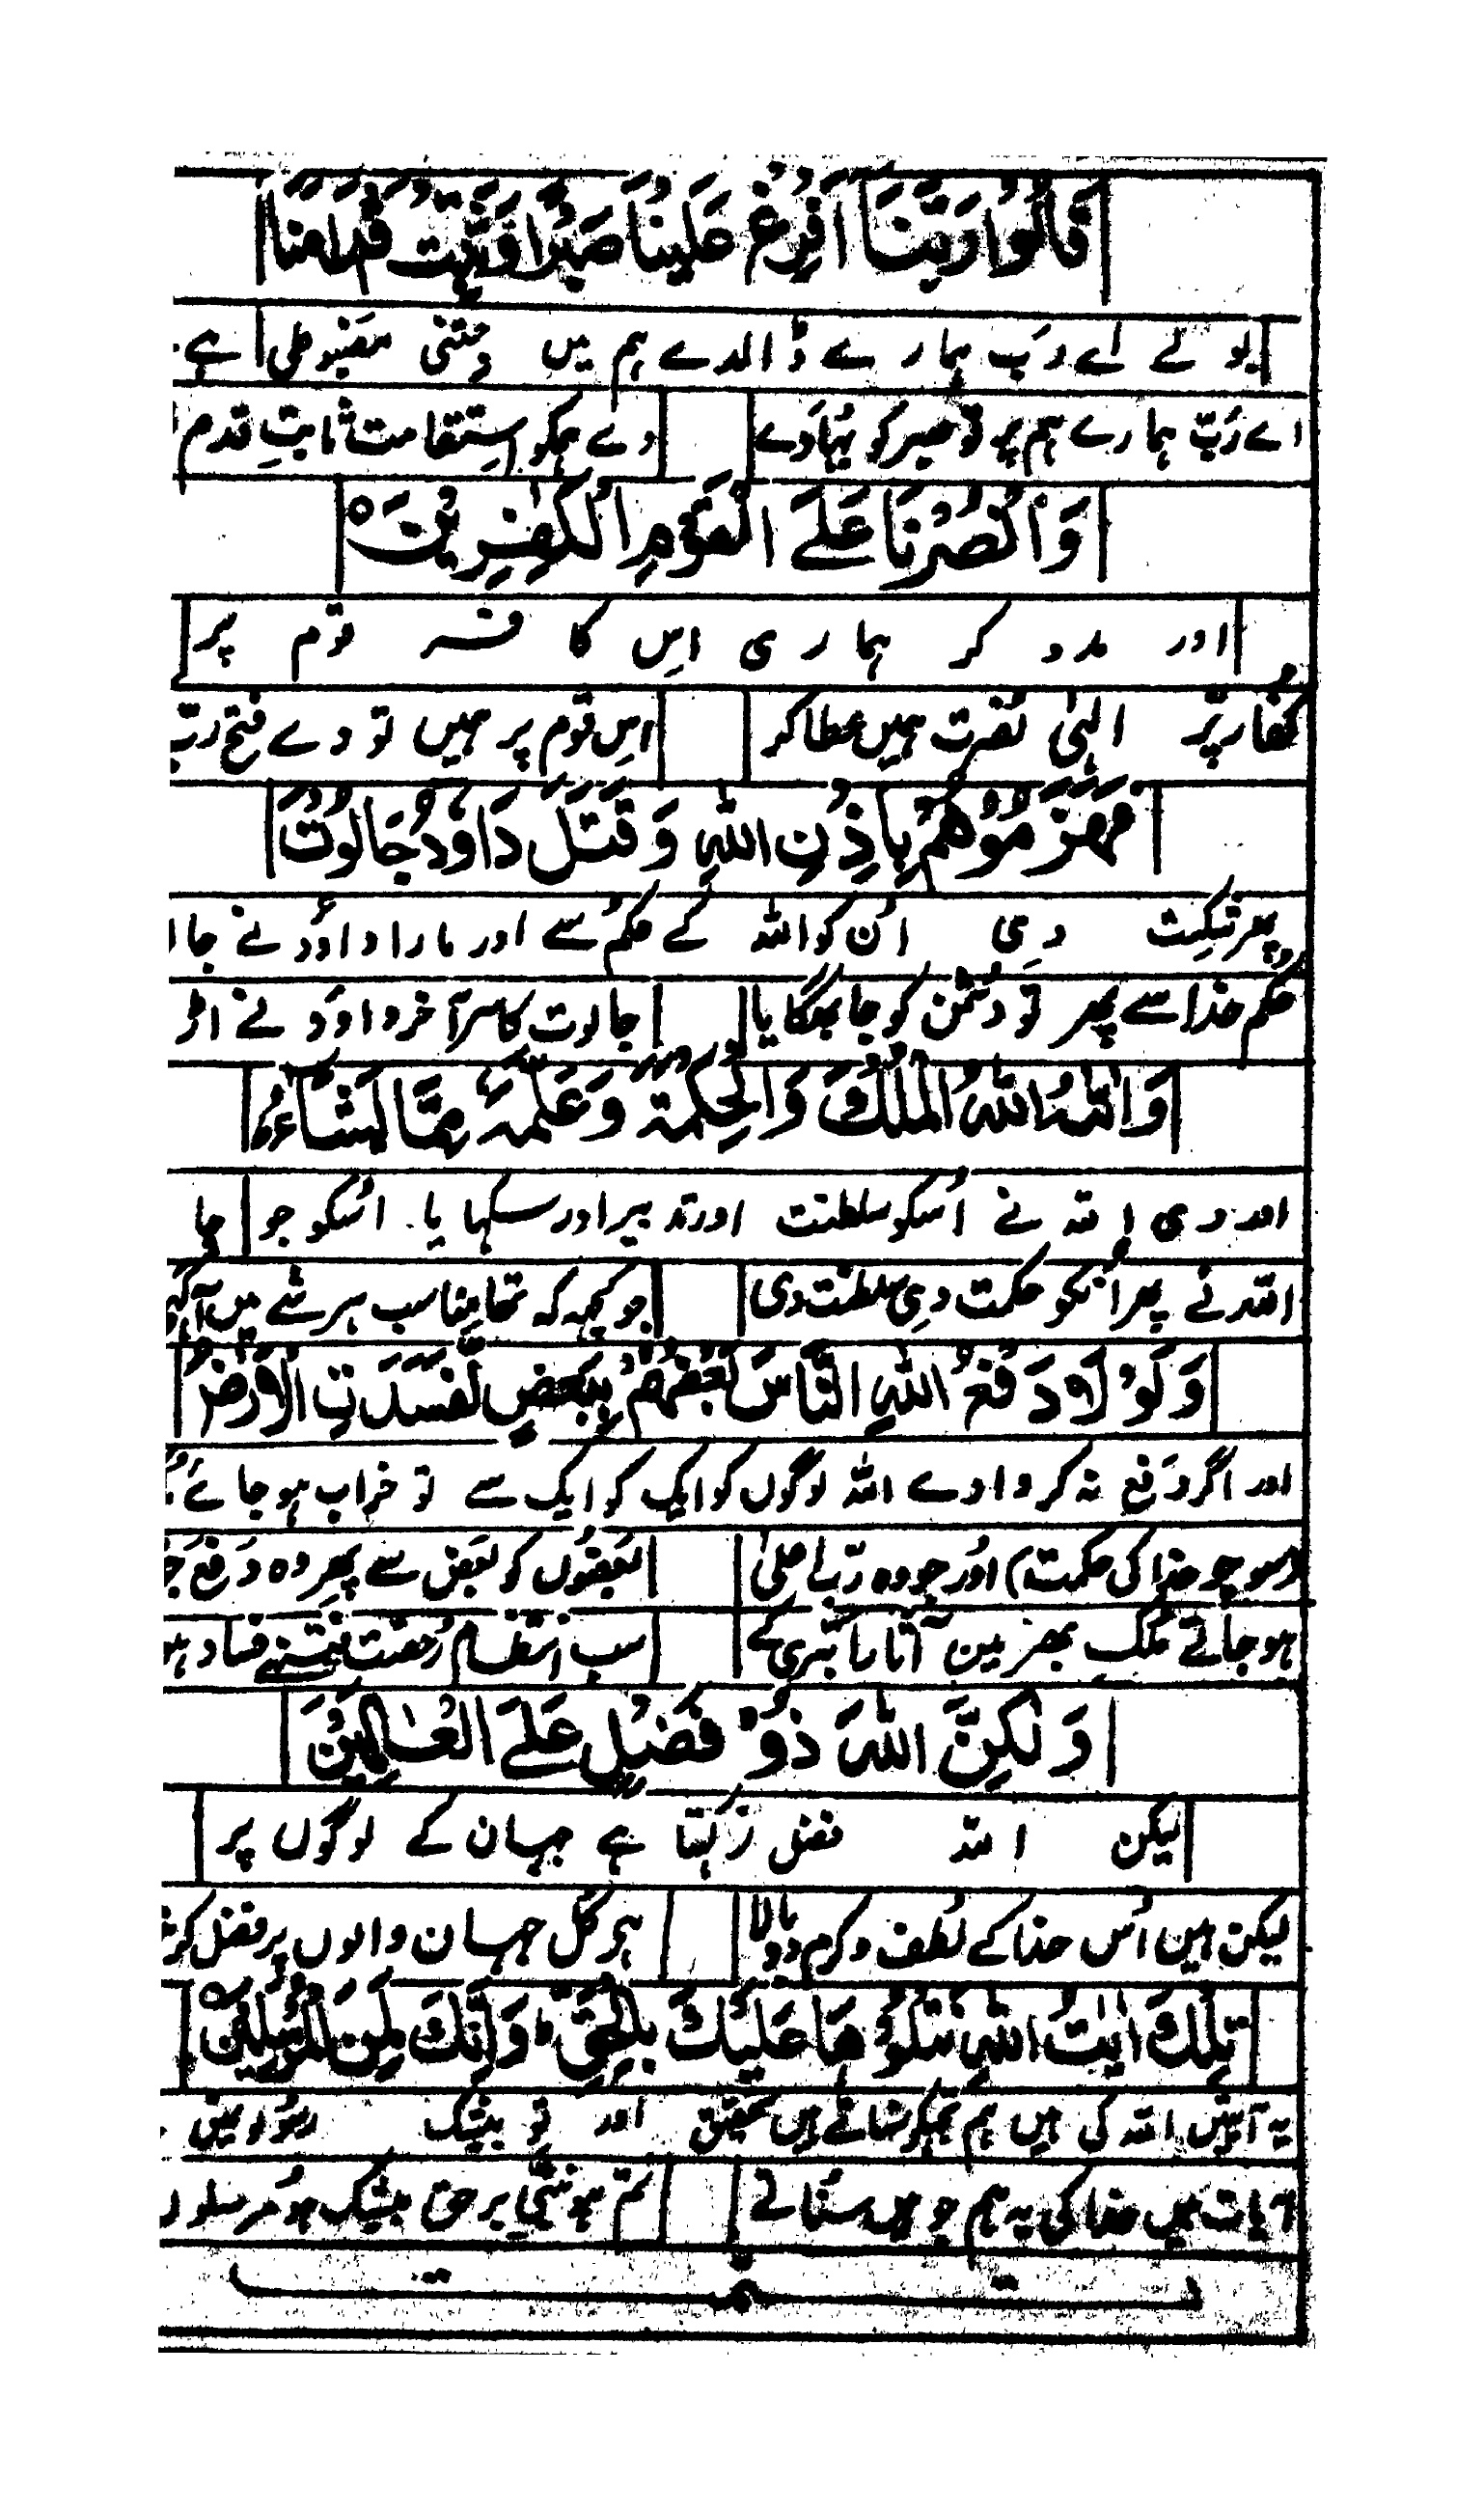 قَالُوْا رَبَّنَا اَفْرِغْ عَلَيْنَا صَبْرًا وَّثَبِّتْ اَقْدَامَنَا
بولے اے رب ہمارے ڈالدے ہم میں جتنی مضبوطی ہے
اے رب ہمارے ہم پر تو صبر کو بہادے دے ہمکو استقامت ثابت قدم
وَانْصُرْنَا عَلَى الْقَوْمِ الْكٰفِرِيْنَ ۝
اور مدد کر ہماری اس کافر قوم پر
کفار پر الٰہی نصرت ہمیں عطا کر اس قوم پر ہمیں تو دے فتح رب
فَهَزَمُوْهُمْ بِاِذْنِ اللّٰهِ وَقَتَلَ دَاوٗدُ جَالُوْتَ
پھر شکست دی ان کو اللہ کے حکم سے اور مارا داؤد نے جا
حکم خدا سے پھر تو دشمن کو جا بھگایا جالوت کا سر آخر داود نے اڑ
وَاٰتٰىهُ اللّٰهُ الْمُلْكَ وَالْحِكْمَةَ وَعَلَّمَهٗ مِمَّا يَشَآءُ
اور دی اللہ نے اسکو سلطنت اور تدبیر اور سکہایا اسکو جو چا
اللہ نے پھر انکو حکمت دی سلطنت دی جو کچہہ کہ تھا مناسب ہر شے میں
وَلَوْلَا دَفْعُ اللّٰهِ النَّاسَ بَعْضَهُمْ بِبَعْضٍ لَّفَسَدَتِ الْاَرْضُ
اور اگر دفع نہ کروا دے اللہ لوگوں کو ایک کو ایک سے تو خراب ہو جائے
جو خدا کی حکمت اور جو وہ رب اعلیٰ بعضوں کو بعض سے پھر وہ دفع
ہو جاتے ملک بھر مین آثار ابتری کے سب انتظام رخصت فتنے فساد ہو
وَلٰكِنَّ اللّٰهَ ذُوْ فَضْلٍ عَلَى الْعٰلَمِيْنَ
لیکن اللہ فضل رکہتا ہے جہان کے لوگوں پر
لیکن ہین اس خدا کے لطف و کرم دوبالا ہر کل جہان والوں پر فضل
تِلْكَ اٰيٰتُ اللّٰهِ نَتْلُوْهَا عَلَيْكَ بِالْحَقِّ وَاِنَّكَ لَمِنَ الْمُرْسَلِيْنَ ۝
یہ آیتیں اللہ کی ہیں ہم تجکو سناتے ہیں تحقیق اور تو بیشک رسولوں مین
آیات ہیں خدا کی یہ ہم جو ہیں سناتے تم ہو نبی برحق بیشک ہو